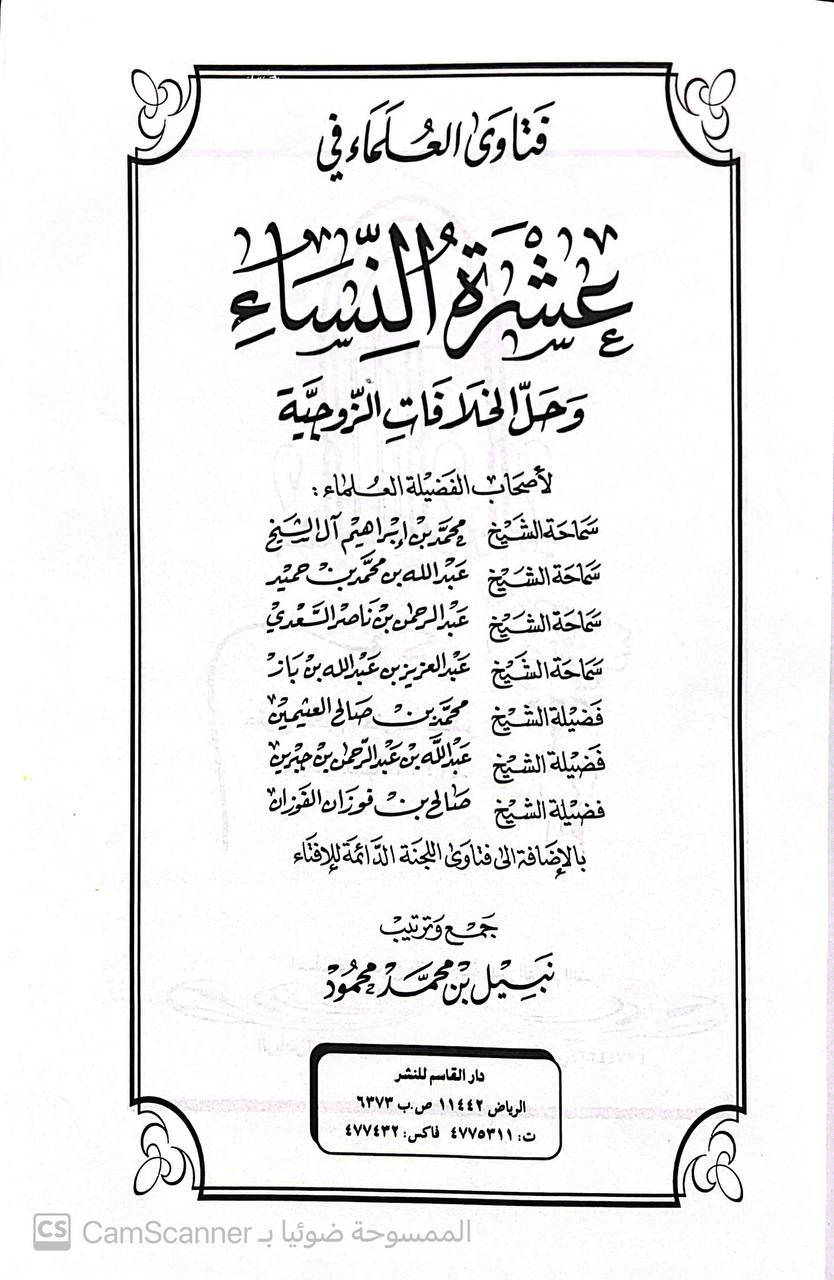 فَتَاوَى العُلَمَاء في
عِشْرَةُ النِّسَاءِ
وَحَلّ الخلَافَاتِ الزّوجيَّة
لأصحَاب الفَضيلة العُلماء :
سَمَاحَة الشَّيْخ محمّد بن إبراهيم آل الشيخ
سَمَاحَة الشَّيْخ عَبْد الله بن محمَّد بن حميد
سَمَاحَة الشَّيْخ عَبْد الرحمن بن نَاصر السَّعْدي
سَمَاحَة الشَّيْخ عَبْد العزيز بن عَبْد الله بن بَاز
فَضيْلة الشَّيْخ محمَّد بن صَالح العثيمين
فَضيْلة الشَّيْخ عَبْد اللَّه بن عَبْد الرّحمن بن جبرين
فَضيْلة الشَّيْخ صَالح بن فوزَان الفَوزان
بالإضَافة الى فتاوَى اللجنة الدَّائمَة للإفتَاء
جَمْع وَترتيب
نَبيْل بن محمَّد محمُود
دار القاسم للنشر
الرياض ١١٤٤٢ ص.ب ٦٣٧٣
ت: ٤٧٧٥٣١١ فاكس: ٤٧٧٤٣٢
الممسوحة ضوئيا بـ CamScanner
CS